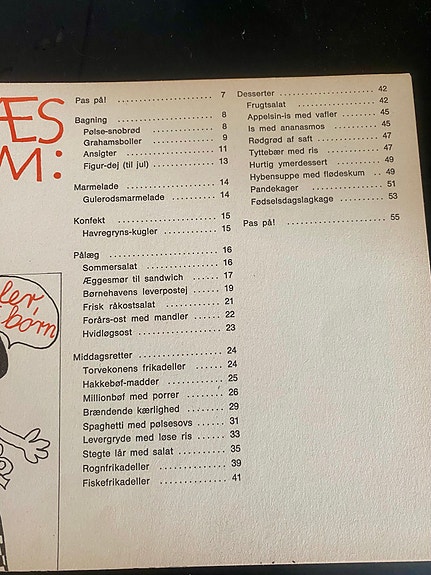 ÆS
M:
Pas på! 7
Bagning 8
Pølse-snobrød 8
Grahamsboller 9
Ansigter 11
Figur-dej (til jul) 13
Marmelade 14
Gulerodsmarmelade 14
Konfekt 15
Havregryns-kugler 15
Pålæg 16
Sommersalat 16
Æggesmør til sandwich 17
Børnehavens leverpostej 19
Frisk råkostsalat 21
Forårs-ost med mandler 22
Hvidløgsost 23
Middagsretter 24
Torvekonens frikadeller 24
Hakkebøf-madder 25
Millionbøf med porrer 26
Brændende kærlighed 29
Spaghetti med pølsesovs 31
Levergryde med løse ris 33
Stegte lår med salat 35
Rognfrikadeller 39
Fiskefrikadeller 41
Desserter 42
Frugtsalat 42
Appelsin-is med vafler 45
Is med ananasmos 45
Rødgrød af saft 47
Tyttebær med ris 47
Hurtig ymerdessert 49
Hybensuppe med flødeskum 49
Pandekager 51
Fødselsdagslagkage 53
Pas på! 55
ler,
børn